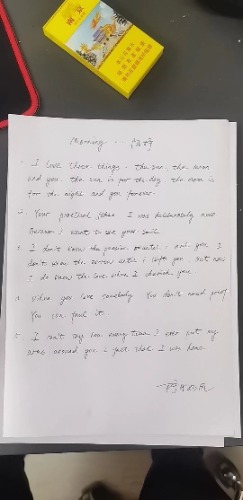 南京
Morning
1. I love three things. The sun, the moon
and you. the sun is for the day, the moon is
for the night and you forever.
2. Your practical jokes I was deliberately
because I want to see your smile.
3. I don't know the and you I
don't know the sorrow until I left you. but now
I do know the love when I cherish you.
4. When you love somebody You don't need proof
You can feel it.
5. I can't say how every time I ever put my
arms around you I felt that I was home.